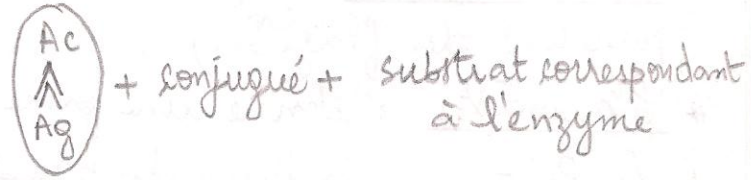 Ac
+ conjugué + substrat correspondant
Ag
à l'enzyme